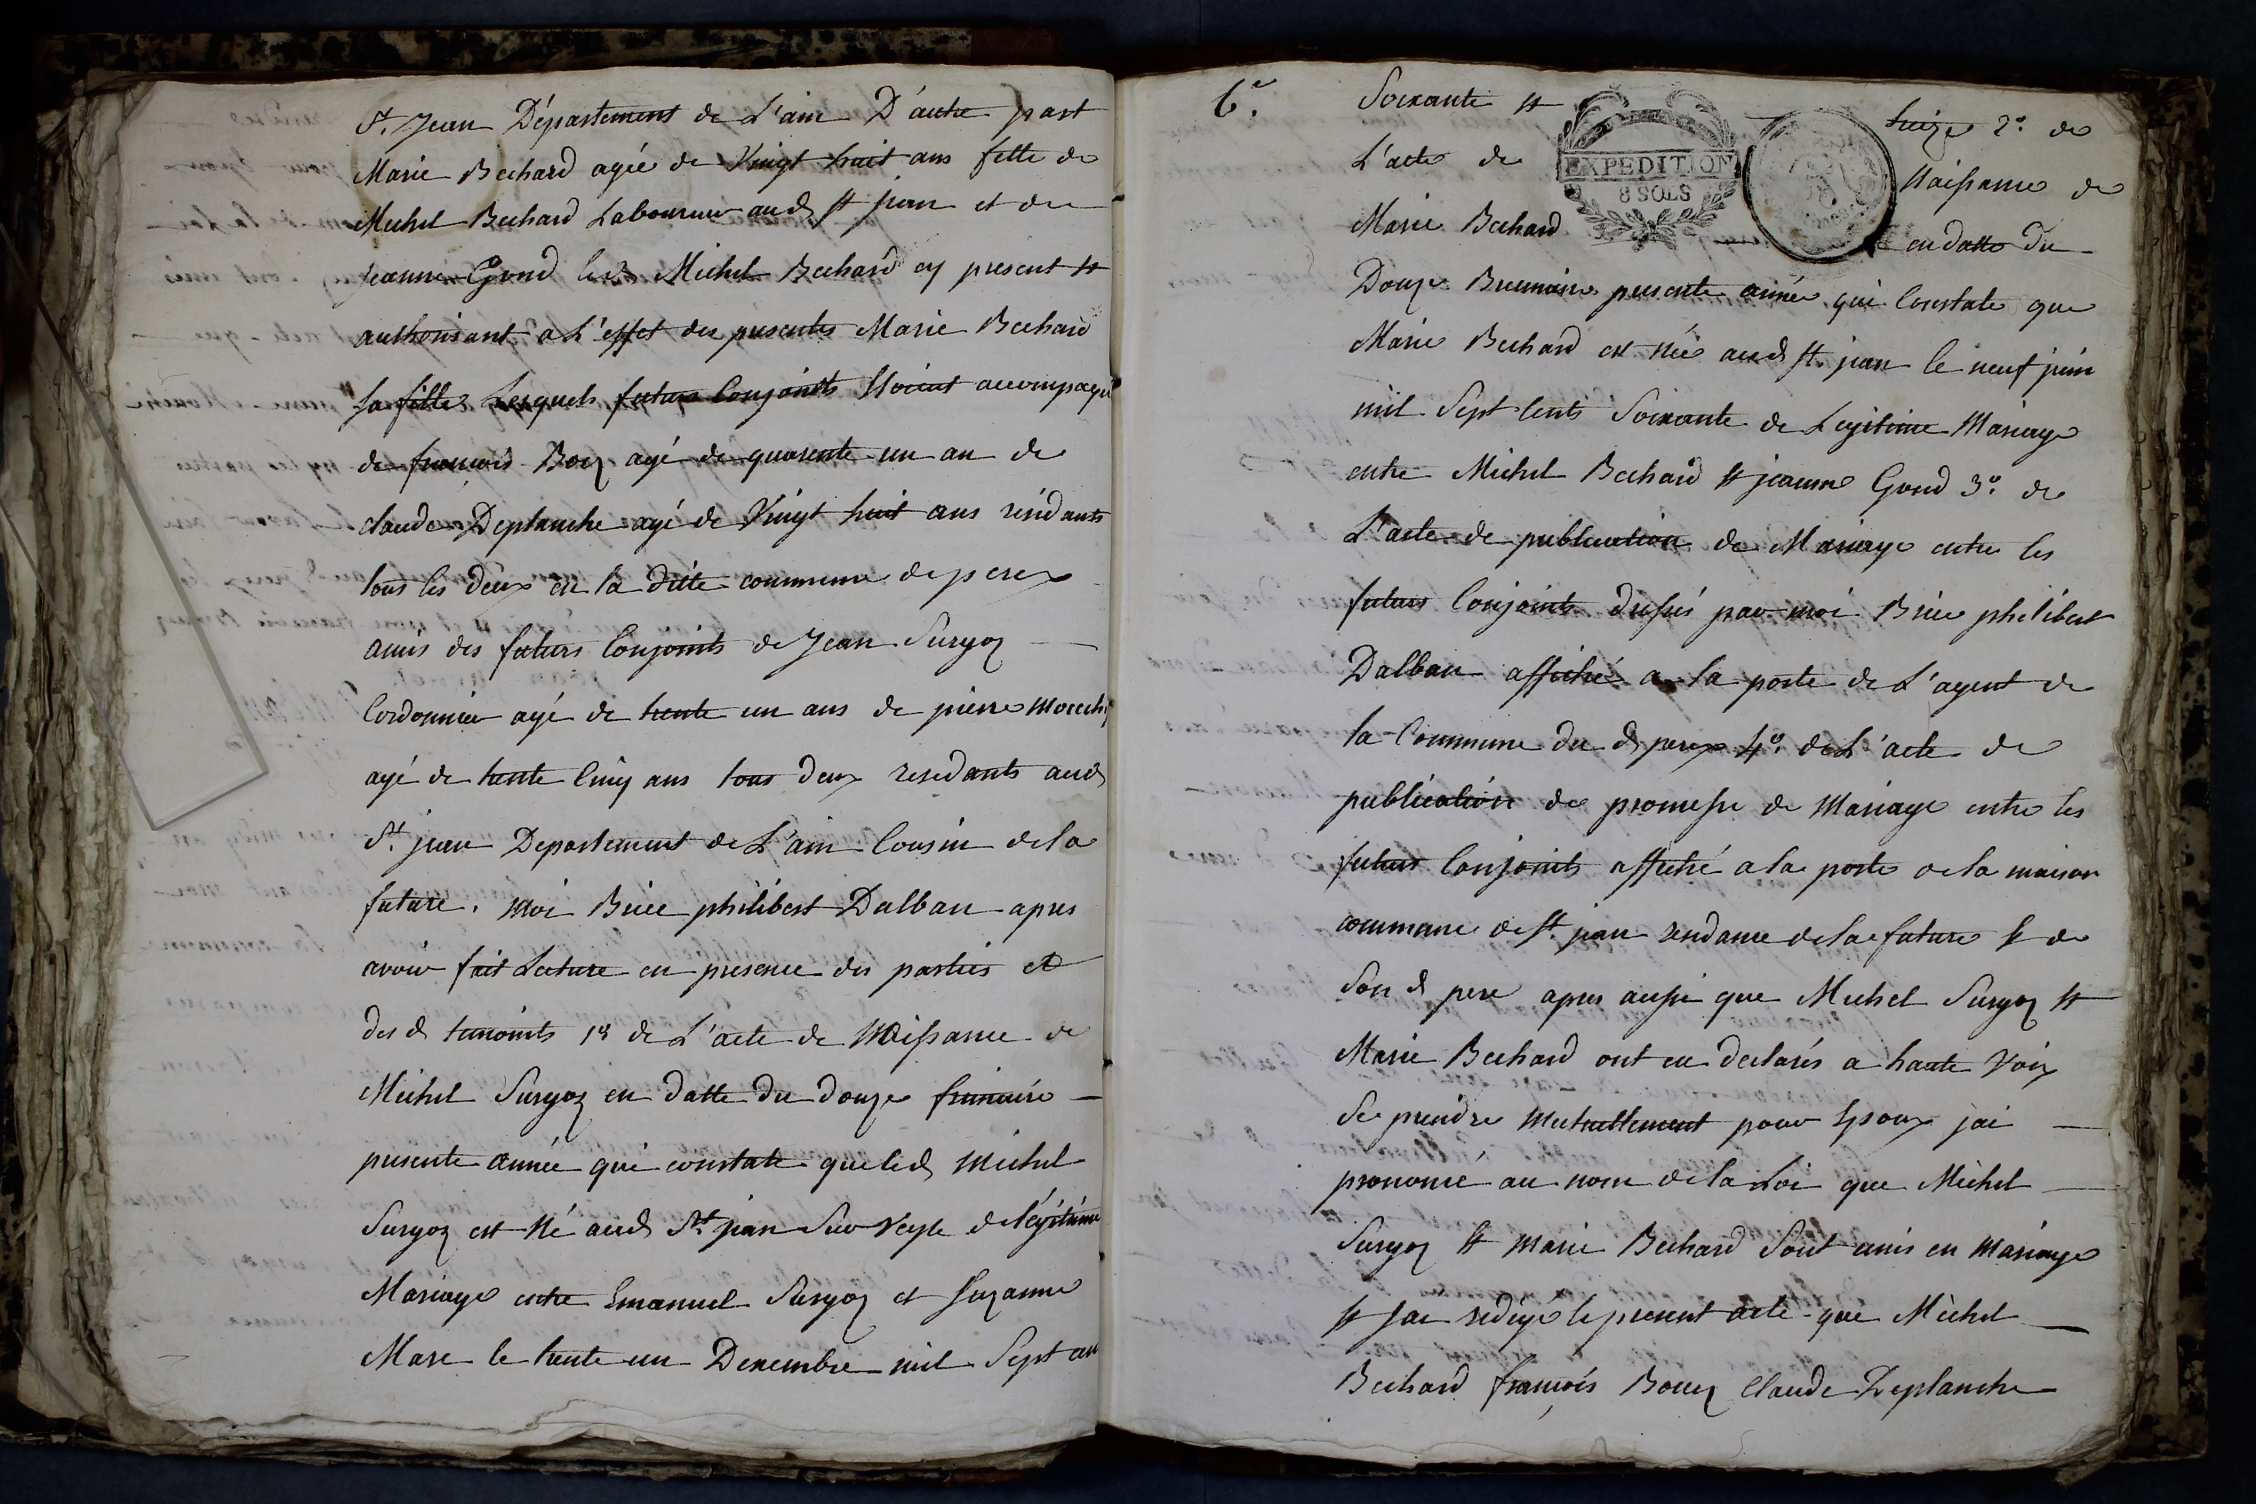 St. Jean Département de L'ain D'autre part
Marie Bechard agée de Vingt huit ans fille de
Michel Bechard Laboureur aud St jean et de
jeanne Gond led Michel Bechard cy present et
authorisant a L'effet des presentes Marie Bechard
sa fille Lesquels futurs Conjoints étoient accompagné
de françois Bouz agé de quarente un an de
claude Deplanche agé de Vingt huit ans résidants
tous les deux en la ditte commune de perex
amis des futurs Conjoints de Jean Surgoz
Cordonnier agé de trente un ans de pierre
agé de trente Cinq ans tous deux residants aud
St jean Departement de L'ain Cousin de la
future. Moi Brice philibert Dalban apres
avoir fait Lecture en presence des parties et
des d temoints 1º de L'acte de Naissance de
Michel Surgoz en datte du douze frimaire
presente année qui constate que led Michel
Surgoz est Né aud St jean Sur Veyle de légitime
Mariage entre Emanuel Surgoz et Suzanne
Mare le trente un Decembre mil Sept cen
6e.
Soixante et treize 2º. de
EXPEDITION
8 SOLS
L'acte de Naissance de
Marie Bechard en datte du
Douze Brumaire presente année qui Constate que
Marie Bechard est Née aud St. jean le neuf juin
mil Sept Cents Soixante de Legitime Mariage
entre Michel Bechard et jeanne Gond 3º. de
L'acte de publication de Mariage entre les
futurs Conjoints dressés par moi Brice philibert
Dalban affiché a la porte de L'agent de
la Commune du d perex 4º. de L'acte de
publication de promesse de Mariage entre les
futurs Conjoints affiché a la porte de la maison
commune de St. jean residance de la future et de
Son d pere apres aussi que Michel Surgoz et
Marie Bechard ont eu declarés a haute Voix
Se prendre Mutuellement pour Epoux jai
prononcé au nom de la Loi que Michel
Surgoz et Marie Bechard Sont unis en Mariage
et Jai redigé le present acte que Michel
Bechard françois Bouz Claude Deplanche